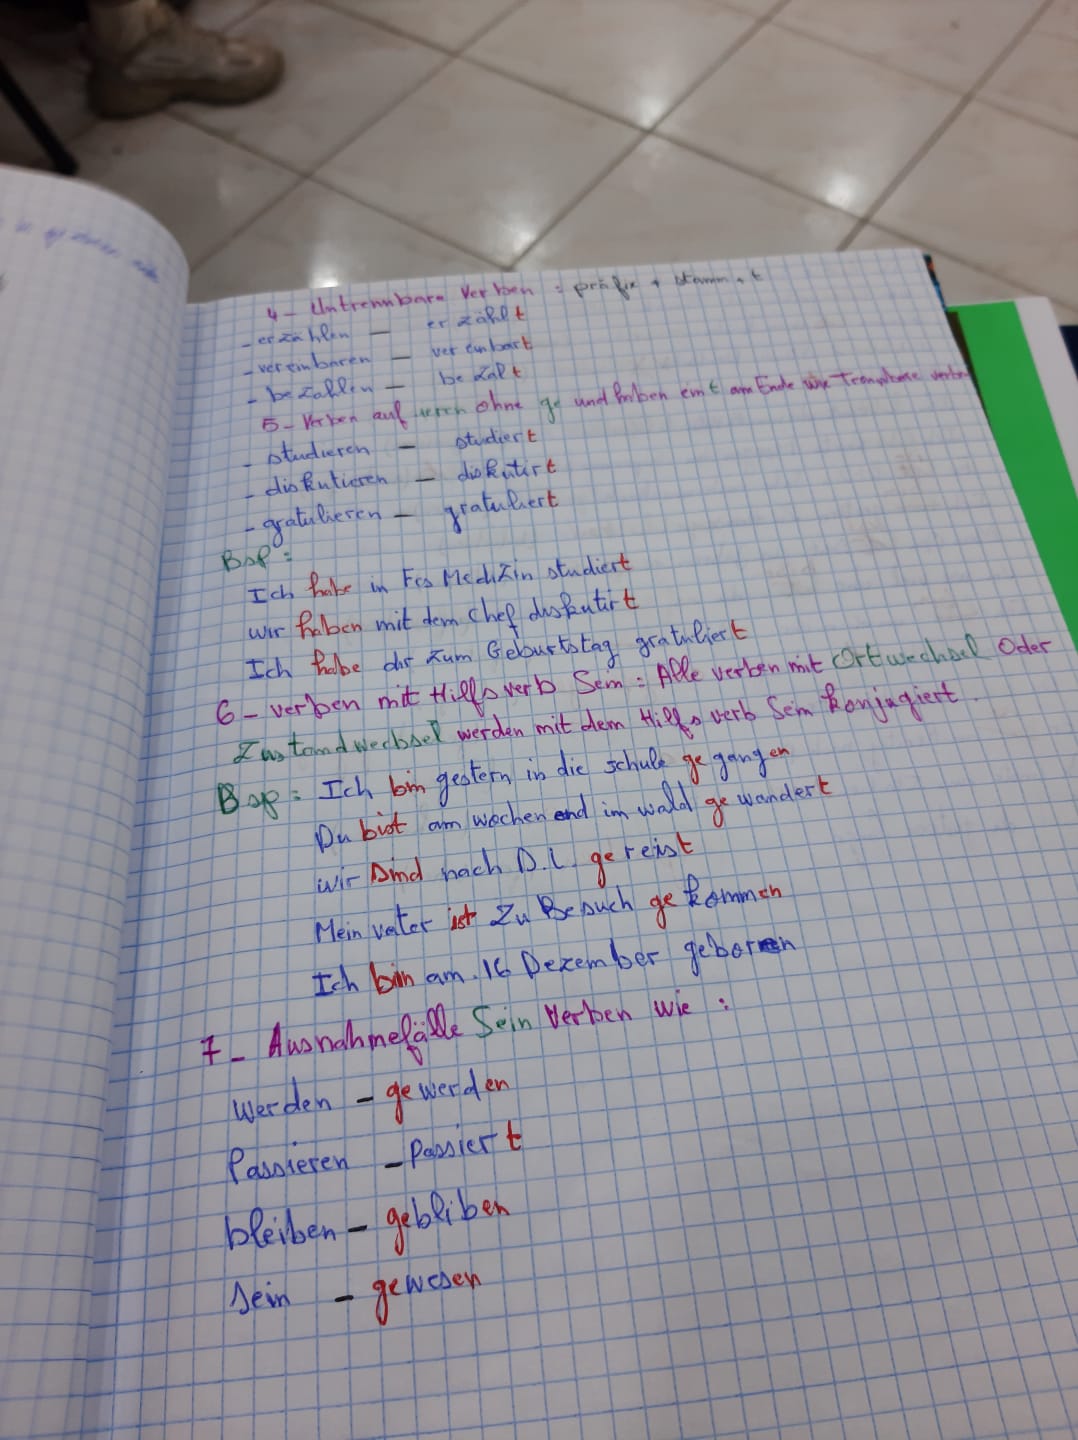 4 - Untrennbare Verben = präfix + stamm + t
- erzählen — erzählt
- vereinbaren — vereinbart
- bezahlen — bezalt
5 - Verben auf ieren ohne ge und haben ein t am Ende wie
- studieren — studiert
- diskutieren — diskutirt
- gratulieren — gratuliert
Bsp :
Ich habe in Fes Medizin studiert
wir haben mit dem Chef diskutirt
Ich habe dir zum Geburtstag gratuliert
6 - verben mit Hilfsverb Sein : Alle verben mit Ortwechsel Oder
Zustandwechsel werden mit dem Hilfsverb Sein konjugiert.
Bsp : Ich bin gestern in die schule gegangen
Du bist am wochenend im wald gewandert
wir sind nach D.L. gereist
Mein vater ist zu Besuch gekommen
Ich bin am 16 Dezember geboren
7 - Ausnahmefälle Sein Verben wie :
werden - gewerden
Passieren - Passiert
bleiben - gebliben
sein - gewesen